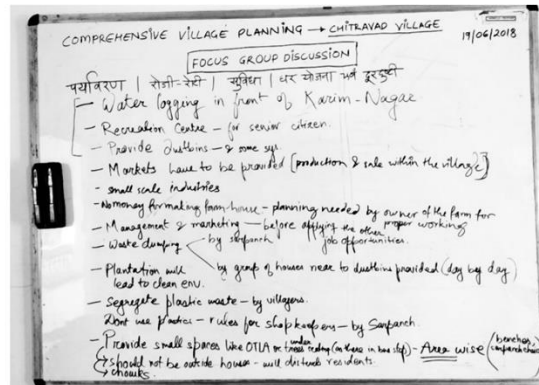 COMPREHENSIVE VILLAGE PLANNING → CHITRAVAD VILLAGE
19/06/2018
FOCUS GROUP DISCUSSION
पर्यावरण | रोजी-रोटी | सुविधा | घर योजना
- Water logging in front of Karim-Nagar
- Recreation Centre - for senior citizen.
- Provide dustbins - & some sys.
- Markets have to be provided [production & sale within the village]
- small scale industries
- No money for making farm-house - planning needed by owner of the farm for proper working
- Management & marketing - before applying the other job opportunities.
- Waste dumping - by sarpanch
by group of houses near to dustbins provided (day by day)
- Plantation will lead to clean env.
- Segregate plastic waste - by villagers.
Dont use plastics - rules for shopkeepers - by Sarpanch.
- Provide small spaces like OTLA or under trees seating (as there in bus stop) - Area wise (benches,
→ should not be outside houses - will disturb residents.
→ chowks.